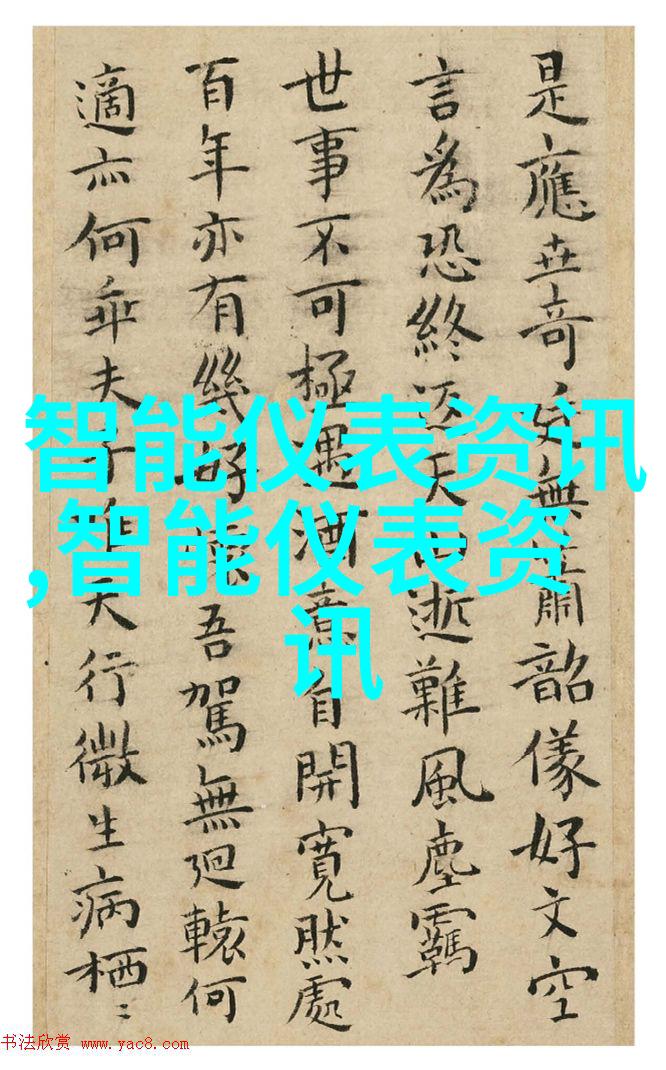 是應世奇無韶儀好文空
言為恐終天逝難風塵羈
世事不可極遇酒意自開寬然處
百年亦有幾好吾駕無迴轅何
適亦何乖夫子天行微生病栖〻
智能仪表资讯
,智能仪表资
讯
书法欣赏 www.yac8.com